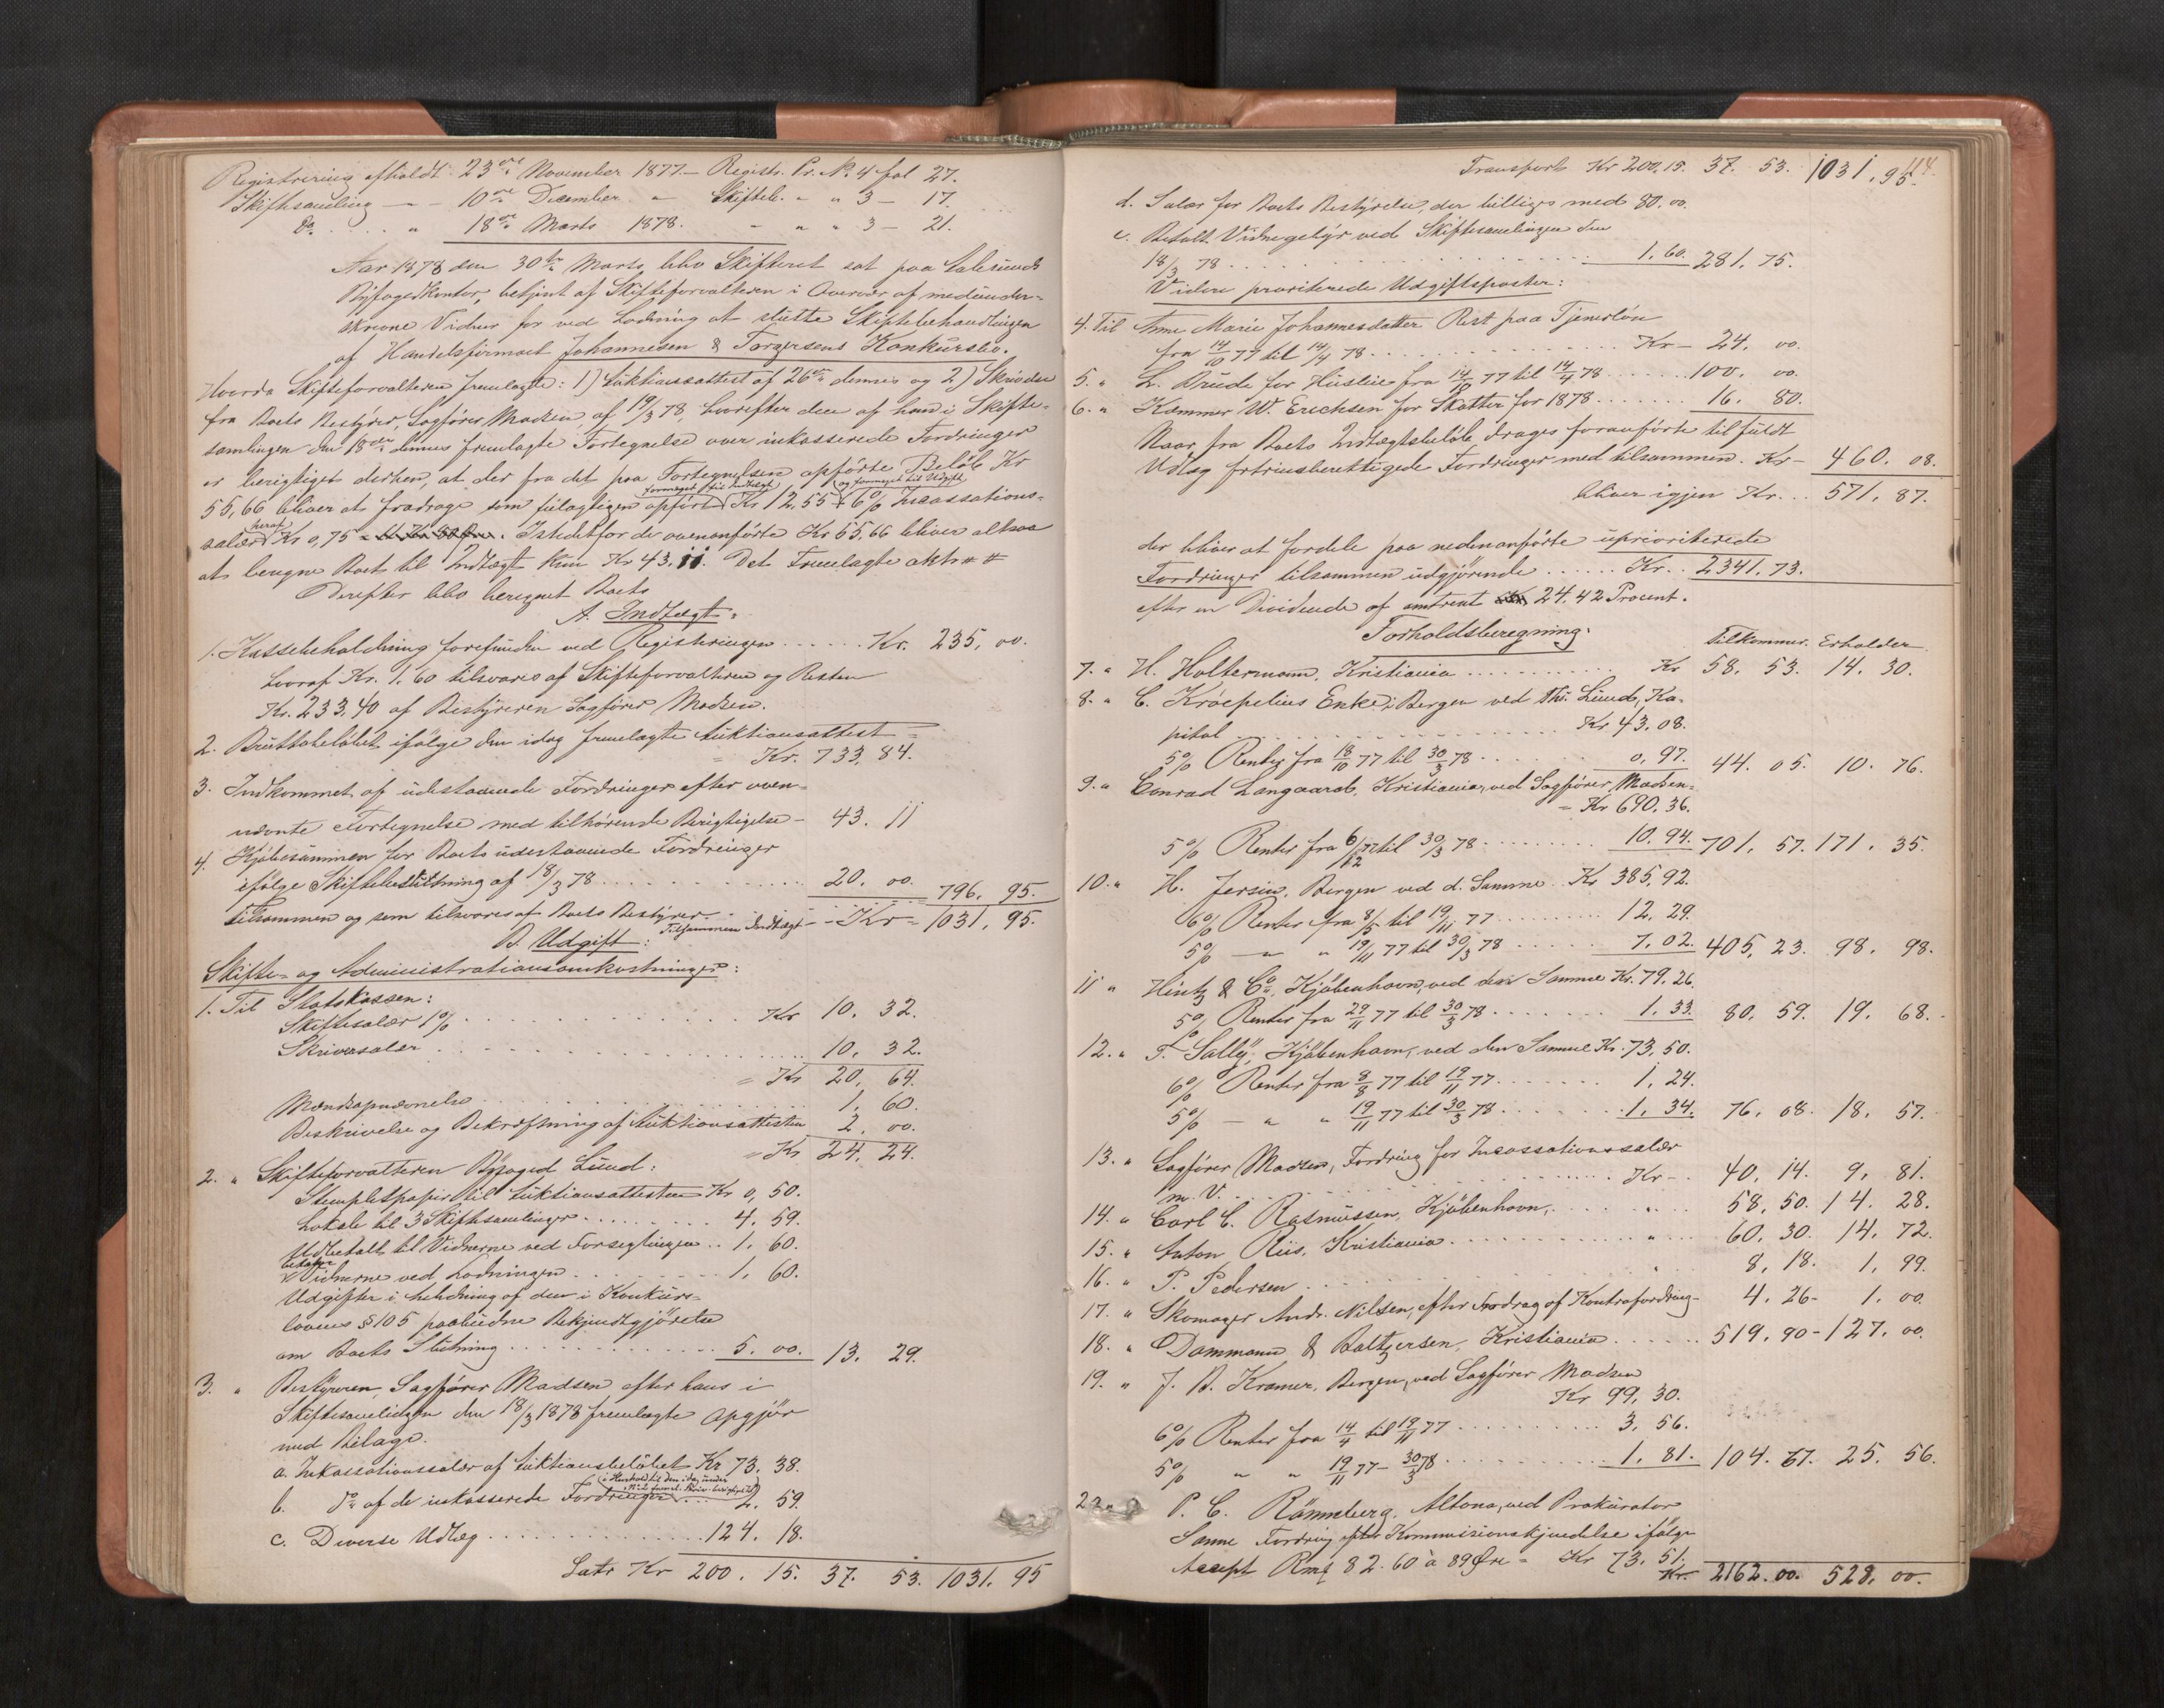 Registrering afholdt 23de November 1877 - Registr. Pr. No. 4 fol 27.
Skiftesamling — — 10de December " Skifteb. " " 3 — 17.
Do. . . . " 18de Marts 1878. " " " 3 — 21.
Aar 1878 den 30te Marts blev Skifteret sat paa Aalesunds
Byfogedkontor, betjent af Skifteforvalteren i Overvær af medunder-
skrevne Vidner for ved Lodning at slutte Skiftebehandlingen
af Handelsfirmaet Johannesen & Torgersens Konkursbo.
Hvorda Skifteforvalteren fremlagte: 1) Auktionsattest af 26de dennes og 2) Skrivelse
fra Boets Bestyrer, Sagfører Madsen af 19/3 78, hvorefter den af ham i Skifte-
samlingen den 18de dennes fremlagte Fortegnelse over inkasserede Fordringer
er berigtiget derhen, at der fra det paa Fortegnelsen opførte Beløb Kr
formeget til Indtægt og formeget til Udgift
55,66 bliver at fradrage som feilagtigen opført Kr 12,55 + 6% Incassations-
heraf
salær Kr 0,75. Istedetfor de ovenanførte Kr 55,66 bliver altsaa
at beregne Boets til Indtægt kun Kr 43.11. Det Fremlagte aktr # #
Derefter blev beregnet Boets
A. Indtægt:
1. Kassebeholdning forefunden ved Registreringen . . . . . . Kr. 235, 00.
hvoraf Kr. 1.60 tilsvares af Skifteforvalteren og Resten
Kr. 233,40 af Bestyreren Sagfører Madsen.
2. Bruttobeløbet ifølge den idag fremlagte Auktionsattest =
= Kr. 733, 84.
3. Indkommet af udestaaende Fordringer efter oven-
nævnte Fortegnelse med tilhørende Berigtigelse - 43. 11
4. Kjøbesummen for Boets udestaaende Fordringer
ifølge Skiftebeslutning af 18/3 78 . . . . . . 20. 00. 796. 95.
tilsammen og som tilsvares af Boets Bestyrer - . .
Tilsammen Indtægt - - Kr = 1031, 95.
B. Udgift:
Skifte- og Administrationsomkostninger:
1. Til Statskassen:
Skiftesalær 1% . . . . . . Kr 10. 32.
Skriversalær . . . . . . 10. 32.
= Kr 20, 64.
Mændsopnævnelse . . . . . . 1. 60.
Beskrivelse og Bekræftning af Auktionsattesten 2. 00.
= Kr 24. 24.
2. " Skifteforvalteren Byfoged Lund:
Stempletpapir til Auktionsattesten Kr 0, 50.
Lokale til 3 Skiftesamlinger . . . . . . 4. 59.
Udbetalt til Vidnerne ved Forseglingen . . 1. 60.
betalte
Vidnerne ved Lodningen . . . . . . 1. 60.
Udgifter i Anledning af den i Konkurs-
lovens § 105 paabudne Bekjendtgjørelse
om Boets Slutning . . . . . . 5. 00. 13. 29.
3. " Bestyreren, Sagfører Madsen efter hans i
Skiftesamlingen den 18/3 1878 fremlagte Opgjør
med Bilage.
a. Inkassationssalær af Auktionsbeløbet Kr 73. 38.
(i Henhold til den idag under
No. 2 fremlagte
b. Do af de inkasserede Fordringer . . . 2. 59.
c. Diverse Udlæg . . . . . . 124. 18.
Latr Kr 200. 15. 37. 53. 1031. 95
114.
Transport Kr 200,15. 37. 53. 1031, 95.
d. Salær for Boets Bestyrelse, der billiges med 80.00.
e. Betalt Vidnegebyr ved Skiftesamlingen den
18/3 78 . . . . . . 1. 60. 281. 75.
Videre prioriterede Udgiftsposter:
4. Til Anne Marie Johannesdatter Rest paa Tjenerløn
fra 14/10 77 til 14/4 78 . . . . . . Kr - 24. 00.
5. " L. Brude for Husleie fra 14/10 77 til 14/4 78 . . . . . . 100. 00.
6. " Kæmner W. Erichsen for Skatter for 1878 . . . . . . 16. 80.
Naar fra Boets Indtægtsbeløb drages foranførte til fuldt
Udlæg fortrinsberettigede Fordringer med tilsammen. Kr - 460. 08.
bliver igjen Kr. . . 571. 87.
der bliver at fordele paa nedenanførte uprioriterede
Fordringer tilsammen udgjørende . . . . . . Kr. . 2341. 73.
efter en Dividende af omtrent 24.42 Procent.
Forholdsberegning: Tilkommer. Erholder
7. " H. Holtermann, Kristiania . . . . . . Kr 58. 53. 14. 30.
8. " C. Kröepelius Enke i Bergen ved Th. Lund, Ka-
pital . . . . . . Kr 43. 08.
5% Renter fra 18/10 77 til 30/3 78 . . . . . . 0, 97. 44. 05. 10. 76.
9. " Conrad Langaard, Kristiania, ved Sagfører Madsen =
= Kr 690. 36.
5% Renter fra 6/12 77 til 30/3 78 . . . . . . 10. 94. 701. 57. 171. 35.
10. " H. Jersin, Bergen ved d. Samme . Kr 385,92.
6% Renter fra 8/5 til 19/11 77 . . . . . . 12. 29.
5% — " 19/11 77 til 30/3 78 . . . . . . 7. 02. 405, 23. 98. 98.
11 " Hintz & Co., Kjøbenhavn, ved den Samme Kr. 79. 26.
5% Renter fra 29/11 77 til 30/3 78 . . . . . . 1. 33. 80. 59. 19. 68.
12. " F. Sally, Kjøbenhavn, ved den Samme Kr. 73, 50.
6% Renter fra 8/8 77 til 19/11 77 . . . . . . 1. 24.
5% — " " 19/11 77 til 30/3 78 . . . . . . 1. 34. 76. 08. 18. 57.
13. " Sagfører Madsen, Fordring for Incassationssalær
m. V. . . . . . . Kr - . 40. 14. 9. 81.
14. " Carl C. Rasmussen, Kjøbenhavn, . . . . . . " . 58. 50. 14. 28.
15. " Anton Riis, Kristiania . . . . . . " 60. 30. 14. 72.
16. " P. Pedersen . . . . . . " 8. 18. 1. 99.
17. " Skomager Andr. Nilsen, efter Fradrag af Kontrafordring - 4. 26 - 1. 00.
18. " Dammann & Baltzersen, Kristiania . . . . . . 519. 90 - 127. 00.
19. " J. B. Kramer, Bergen, ved Sagfører Madsen
Kr 99, 30.
6% Renter fra 14/4 til 19/11 77 . . . . . . 3. 56.
5% " " 19/11 77 - 30/3 78 . . . . . . 1. 81. 104. 67. 25. 56.
20 " P. C. Römmberg, Altona, ved Prokurator
Sanne Fordring efter Kommisionskjendelse ifølge
Accept Rmk 82.60 à 89 Øre = Kr 73. 51.
Kr. 2162. 00. 528. 00.